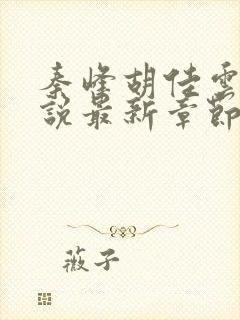 秦峰胡佳雲
說最新章節
薇子